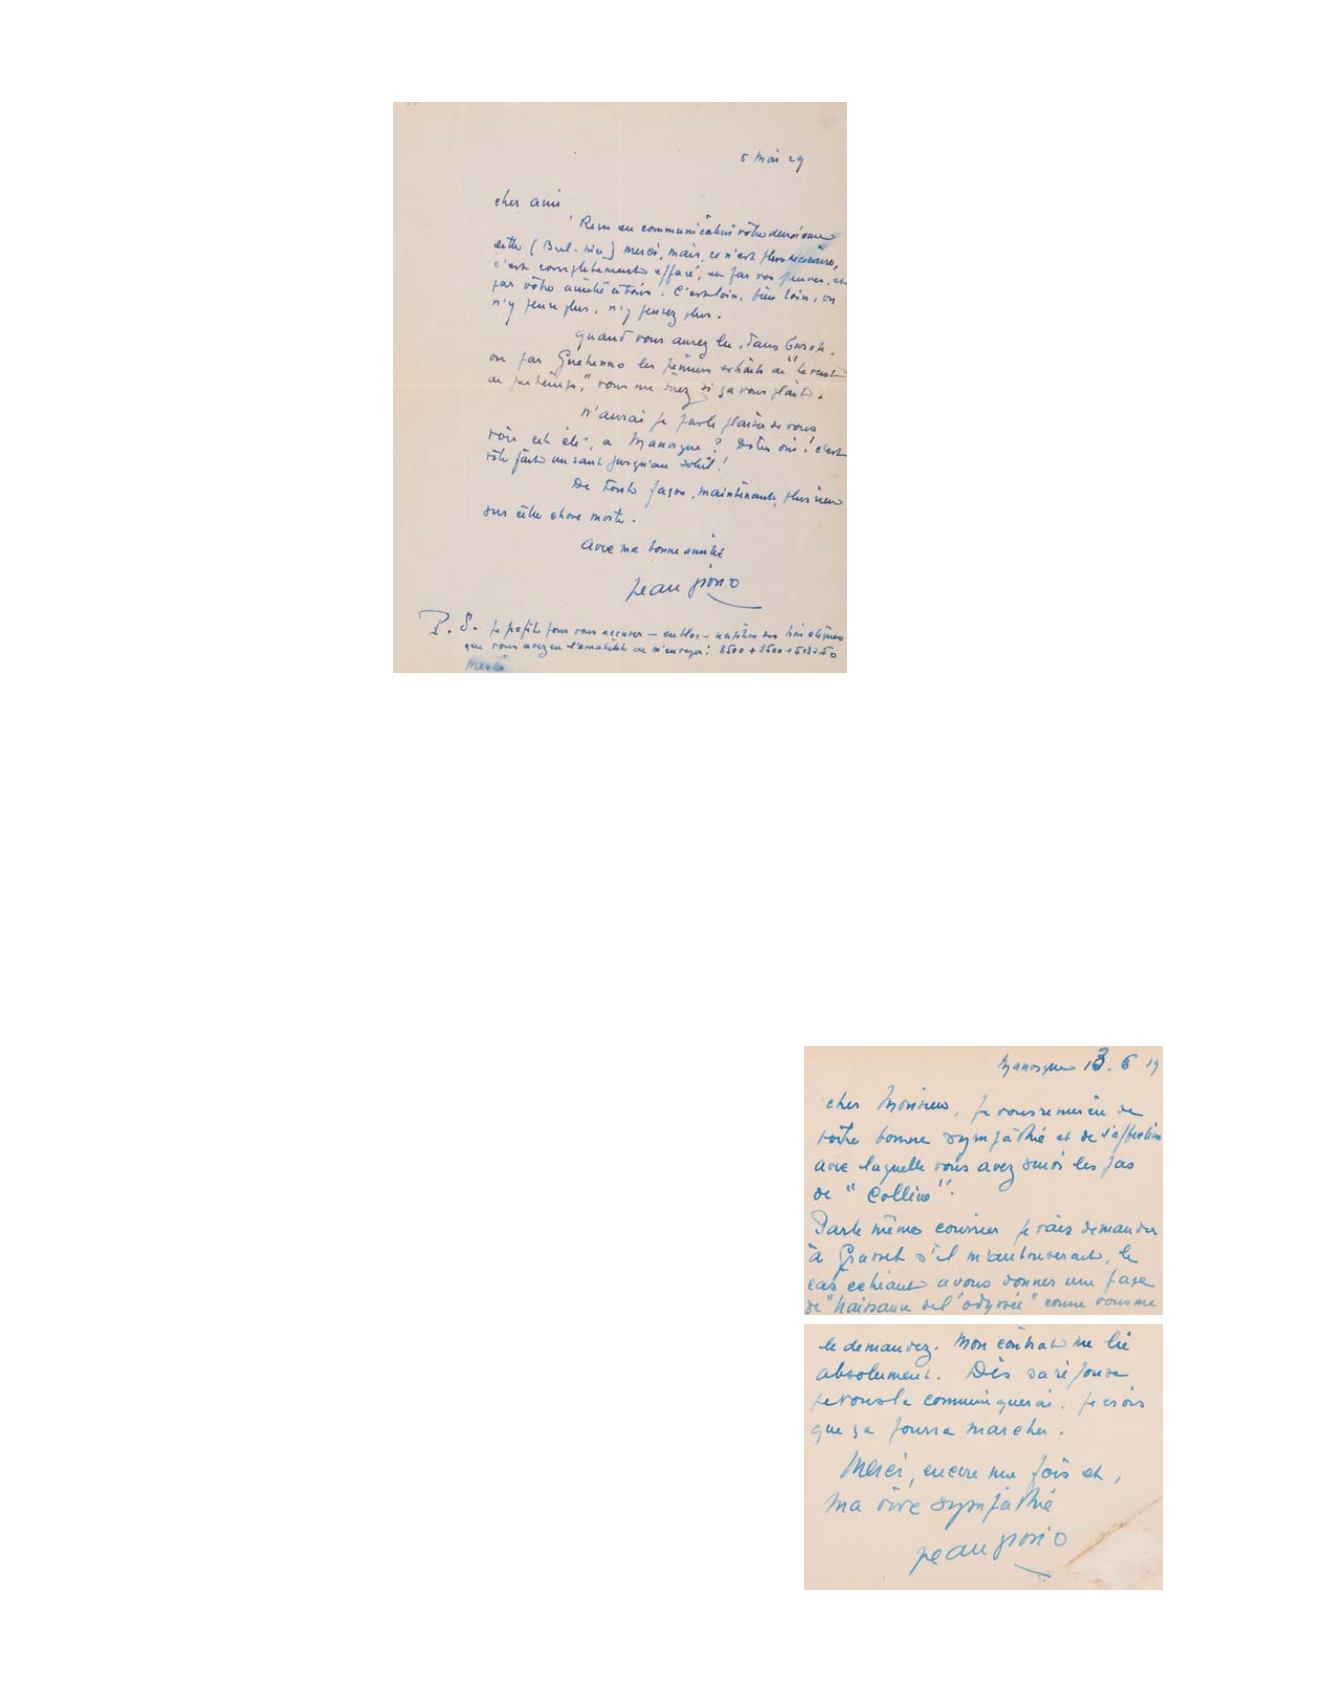 5 Mai 29
cher ami
Reçu en communication votre deuxième
lettre ( ) merci, mais, ce n'est plus nécessaire,
c'est complètement effacé, et par vos
par votre amitié à tous. C'est loin, bien loin, on
n'y pense plus, n'y pensez plus.
quand vous aurez lu, dans Europe.
ou par Guehenno les premiers extraits de "le vent
de printemps," vous me direz si ça vous plaît.
n'aurai je pas le plaisir de vous
voir cet été, a Manosque? Dites oui! c'est
vite fait un saut jusqu'au soleil!
De toute façon, maintenant, plus rien
sur cette chose morte.
avec ma bonne amitié
jean giono
P. S. je profite pour vous accuser — en bloc — des trois chèques
que vous avez eu l'amabilité de m'envoyer: 3500 + 3500 +
Merci
Manosque 13. 6
cher Monsieur, je vous remercie de
votre bonne sympathie et de l'affection
avec laquelle vous avez suivi les pas
de "Colline".
Par le même courrier je vais demander
à Grasset s'il m'autoriserait, le
cas echéant a vous donner une page
de "naissance de l'odyssée" comme vous me
le demandez. Mon contrat me lie
absolument. Dès sa réponse
je vous la communiquerai. je crois
que ça pourra marcher.
Merci, encore une fois et,
ma vive sympathie
jean giono